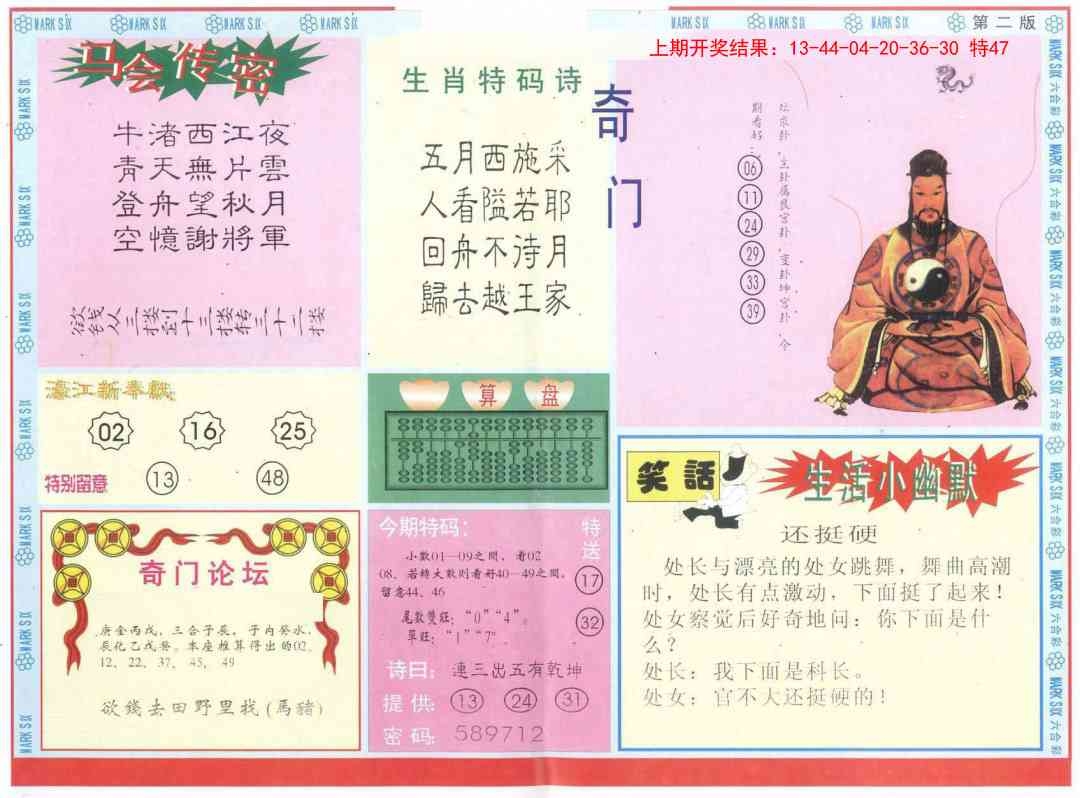 第二版
上期开奖结果：13-44-04-20-36-30 特47
马会传密
牛渚西江夜
青天無片雲
登舟望秋月
空憶謝將軍
欲钱从三楼到十三楼转三十二楼
生肖特码诗
五月西施采
人看隘若耶
回舟不待月
歸去越王家
奇门
坛求卦，主卦属艮宫卦，变卦坤宫卦，今
期看好：
06
11
24
29
33
39
濠江新奉献
02 16 25
特别留意 13 48
算盘
笑話
生活小幽默
还挺硬
处长与漂亮的处女跳舞，舞曲高潮
时，处长有点激动，下面挺了起来！
处女察觉后好奇地问：你下面是什
么？
处长：我下面是科长。
处女：官不大还挺硬的！
奇门论坛
唐金丙戊，三合子辰，子内癸水，
辰化乙戊癸。本座推算得出的02、
12、22、37、45、49
欲錢去田野里找(馬豬)
今期特码：
小数01—09之间，看02
08、若转大数则看好40—49之间。
留意44、46
尾数雙旺：“0”“4”。
單旺：“1”“7”
特送
17
32
诗曰：連三出五有乾坤
提供：13 24 31
密码：589712
MARK SIX 六合彩